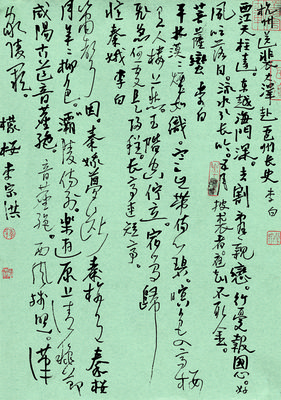 杭州送裴大澤赴廬州長史 李白
西江天柱遠 東越海門深 去割慈親戀 行憂報國心 好
風吹落日 流水引長吟 五月披裘者 應知不取金
菩薩蠻 李白
平林漠漠煙如織 寒山一帶傷心碧 暝色入高樓
有人樓上愁 玉階空佇立 宿鳥歸
飛急 何處是歸程 長亭連短亭
憶秦娥 李白
簫聲咽 秦娥夢斷秦樓月 秦樓
月 年年柳色 灞陵傷別 樂遊原上清秋節
咸陽古道音塵絕 音塵絕 西風殘照 漢
家陵闕
李宗洪